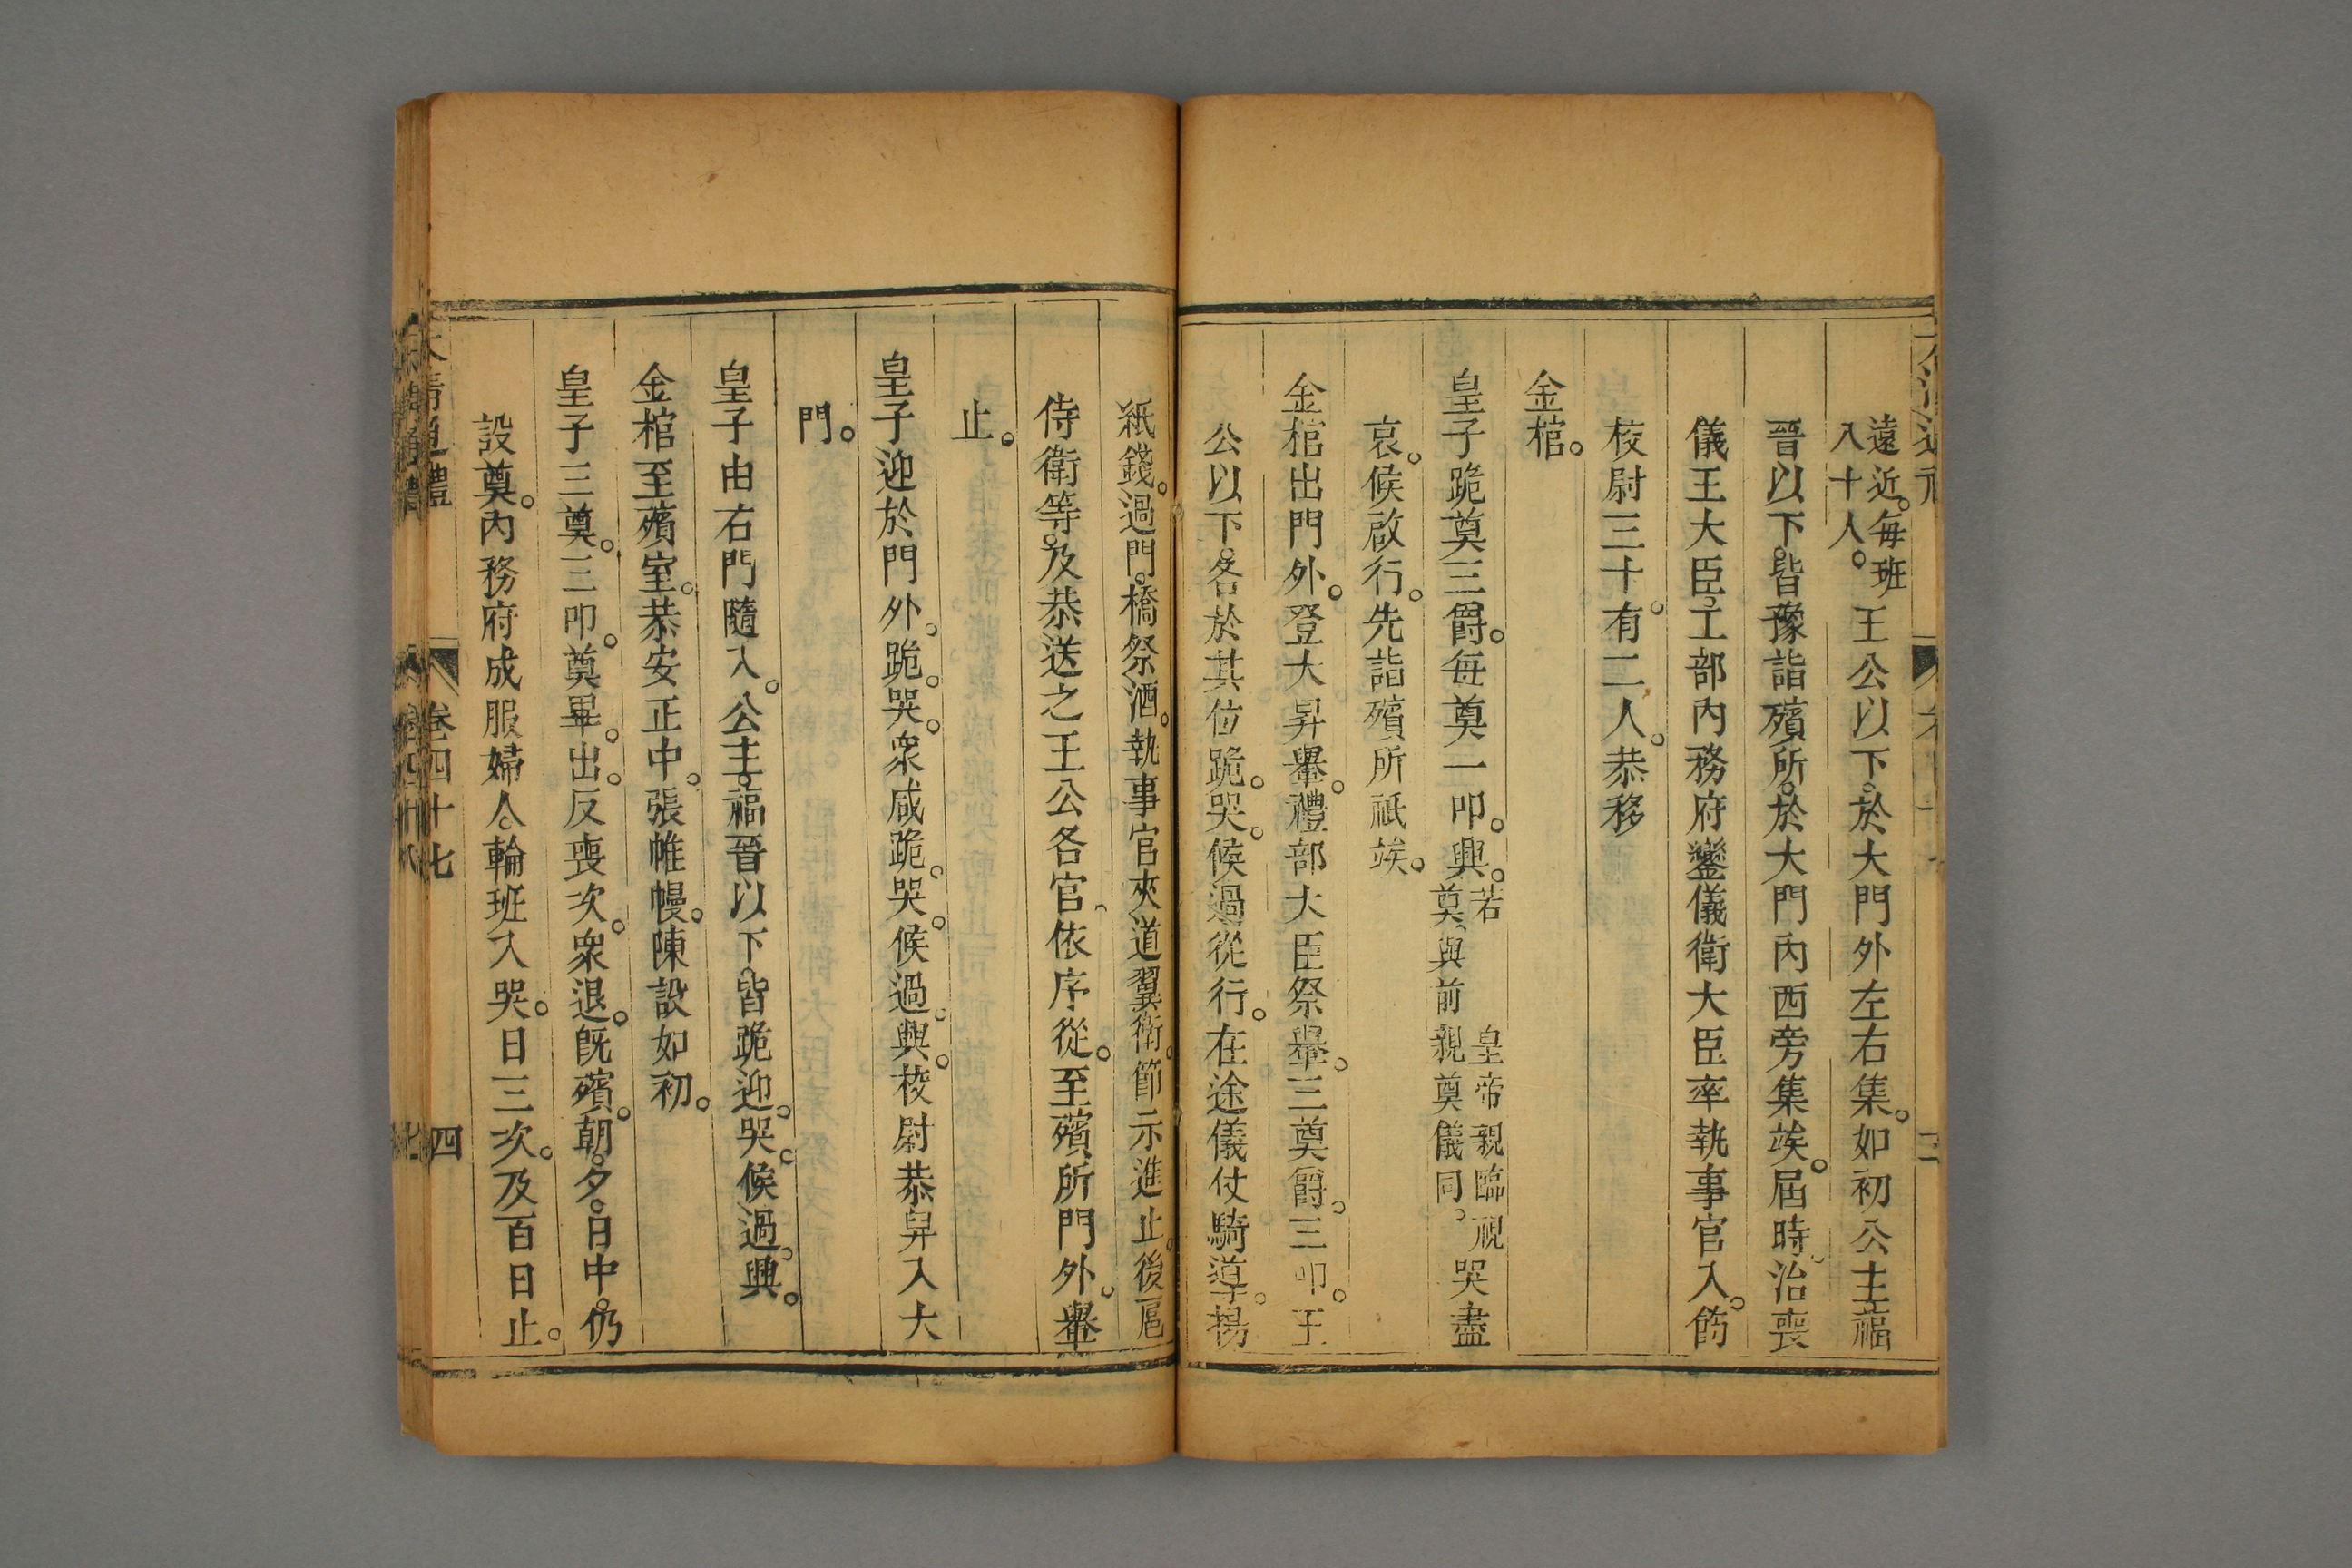 遠近。每班
八十人。
王公以下。於大門外左右集。如初公主福
晉以下。皆豫詣殯所。於大門內西旁集竢。屆時。治喪
儀王大臣。工部內務府鑾儀衛大臣率執事官入。飭
校尉三十有二人。恭移
金棺。
皇子跪奠三爵。每奠一叩。興。
若 皇帝親臨視
奠。與前親奠儀同。
哭盡
哀。候啟行。先詣殯所祇竢。
金棺出門外。登大昇轝。禮部大臣祭轝。三奠爵。三叩。王
公以下。各於其位跪。哭。候過從行。在途儀仗騎導。揚
紙錢。過門。橋祭酒。執事官夾道翼衛。節示進止。後扈
侍衛等。及恭送之王公各官。依序從。至殯所門外。轝
止。
皇子迎於門外。跪。哭。衆咸跪。哭。候過。興。校尉恭舁入大
門。
皇子由右門隨入。公主。福晉以下。皆跪迎。哭。候過。興。
金棺至殯室。恭安正中。張帷幔。陳設如初。
皇子三奠。三叩。奠畢。出。反喪次。衆退。旣殯。朝。夕。日中。仍
設奠。內務府成服婦人。輪班入哭。日三次。及百日止。
大清通禮 卷四十七 四